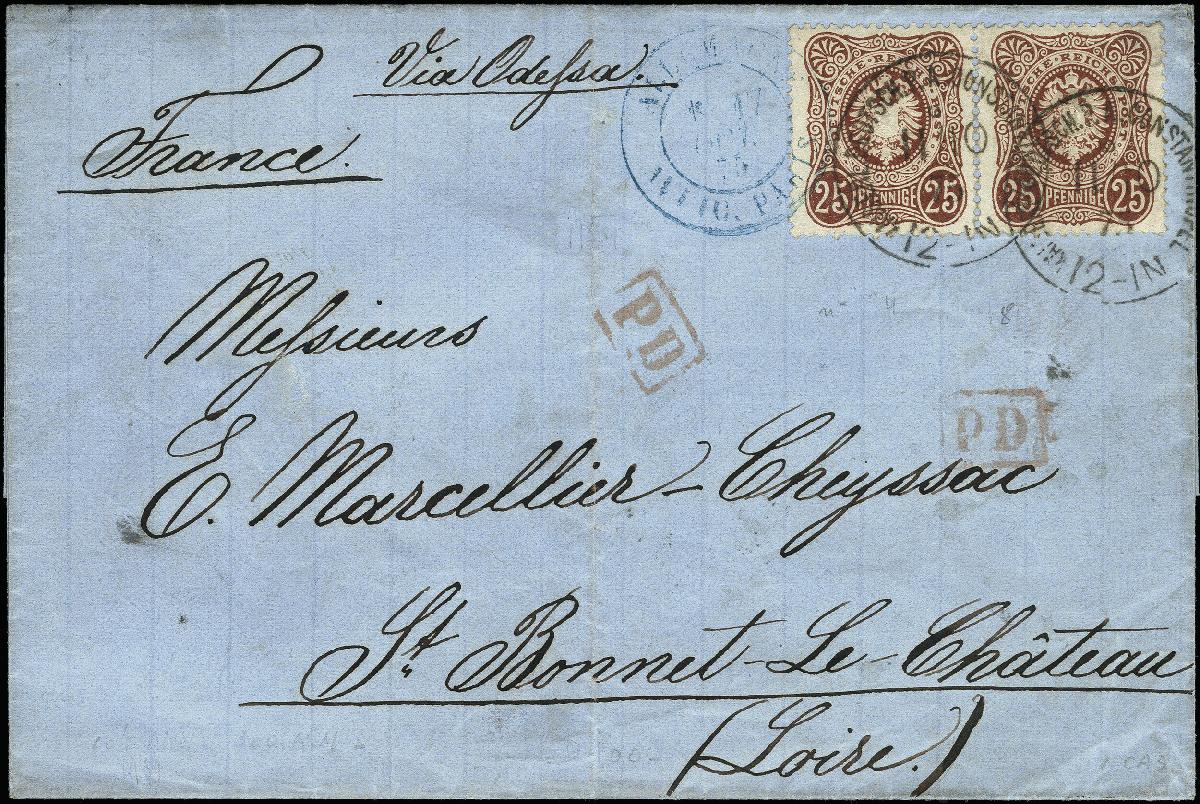 Via Odessa.
France.
DEUTSCHE REICHS-POST
25 PFENNIGE 25
DEUTSCHE REICHS-POST
25 PFENNIGE 25
12-1N
12-1N
PD
PD
Messieurs
E. Marcellier-Cheyssac
St. Bonnet-Le-Château
(Loire.)